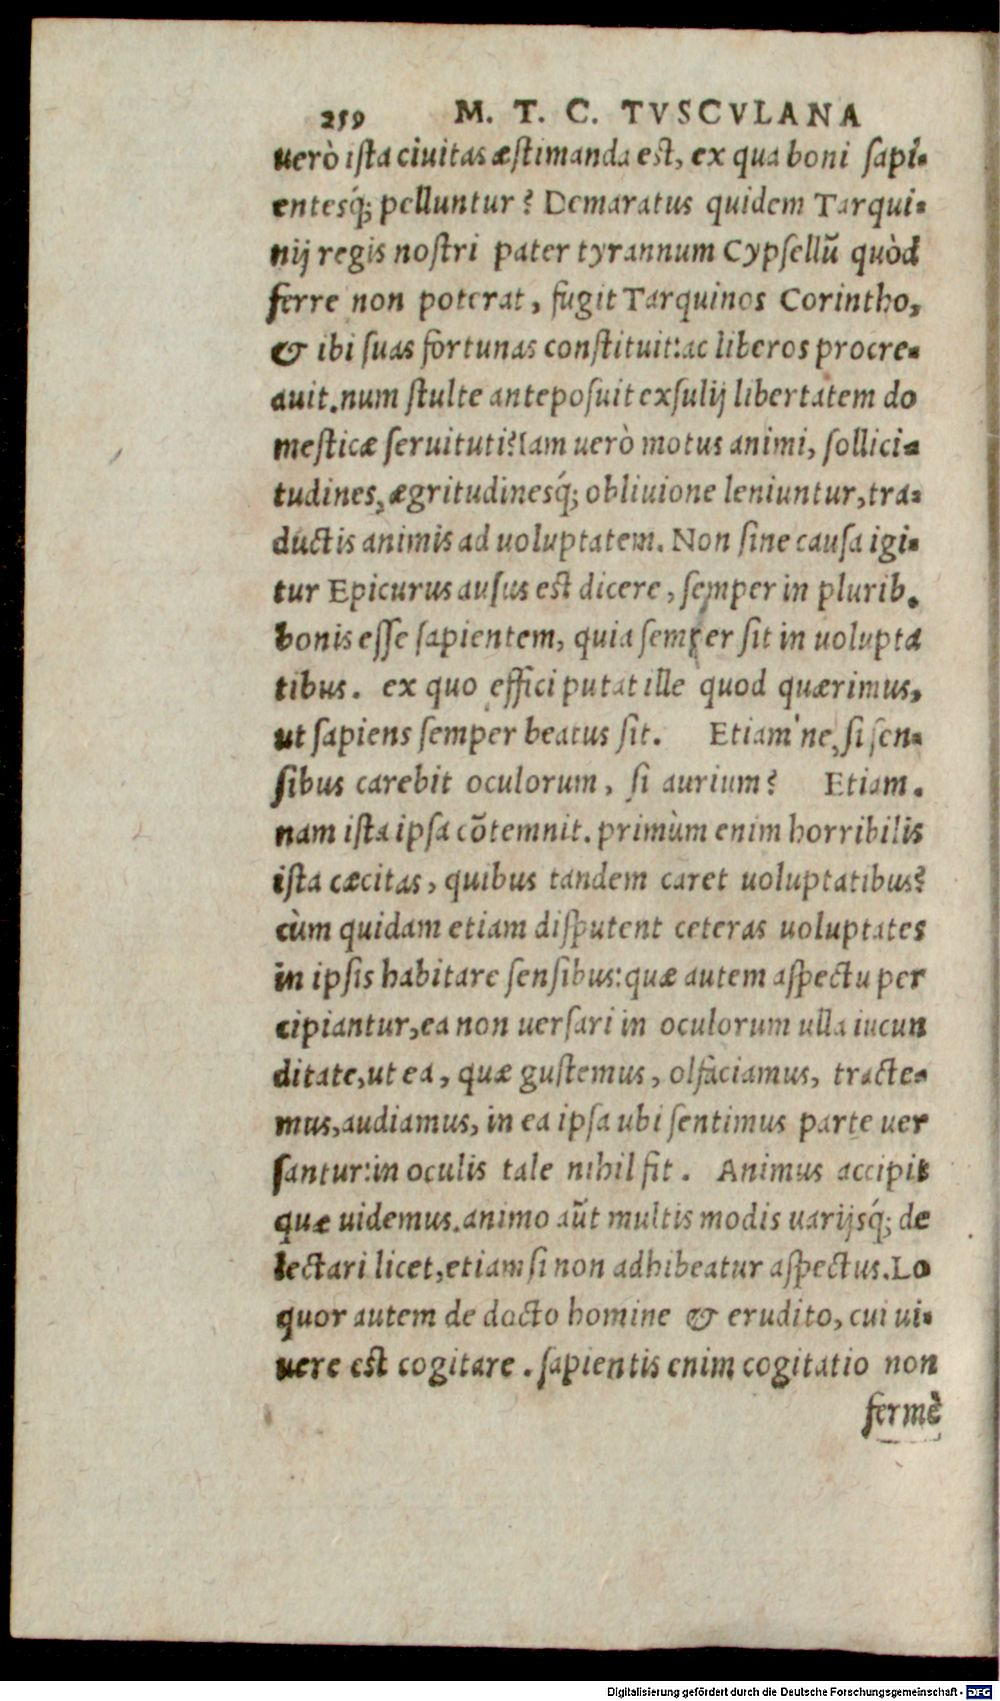 259 M. T. C. TVSCVLANA
uerò ista ciuitas æstimanda est, ex qua boni sapi-
entesq́; pelluntur? Demaratus quidem Tarqui-
nij regis nostri pater tyrannum Cypsellũ quòd
ferre non poterat, fugit Tarquinos Corintho,
& ibi suas fortunas constituit:ac liberos procre-
auit.num stulte anteposuit exsulij libertatem do
mesticæ seruituti?Iam uerò motus animi, sollici-
tudines, ægritudinesq́; obliuione leniuntur,tra-
ductis animis ad uoluptatem. Non sine causa igi-
tur Epicurus ausus est dicere, semper in plurib.
bonis esse sapientem, quia semper sit in uolupta
tibus. ex quo effici putat ille quod quærimus,
ut sapiens semper beatus sit. Etiam'ne, si sen-
sibus carebit oculorum, si aurium? Etiam.
nam ista ipsa cõtemnit. primùm enim horribilis
ista cæcitas, quibus tandem caret uoluptatibus?
cùm quidam etiam disputent ceteras uoluptates
in ipsis habitare sensibus:quæ autem aspectu per
cipiantur,ea non uersari in oculorum ulla iucun
ditate,ut ea, quæ gustemus, olfaciamus, tracte-
mus,audiamus, in ea ipsa ubi sentimus parte uer
santur:in oculis tale nihil fit. Animus accipit
quæ uidemus.animo aũt multis modis uarijsq́; de
lectari licet,etiam si non adhibeatur aspectus.Lo
quor autem de docto homine & erudito, cui ui-
uere est cogitare. sapientis enim cogitatio non
fermè
Digitalisierung gefördert durch die Deutsche Forschungsgemeinschaft - DFG